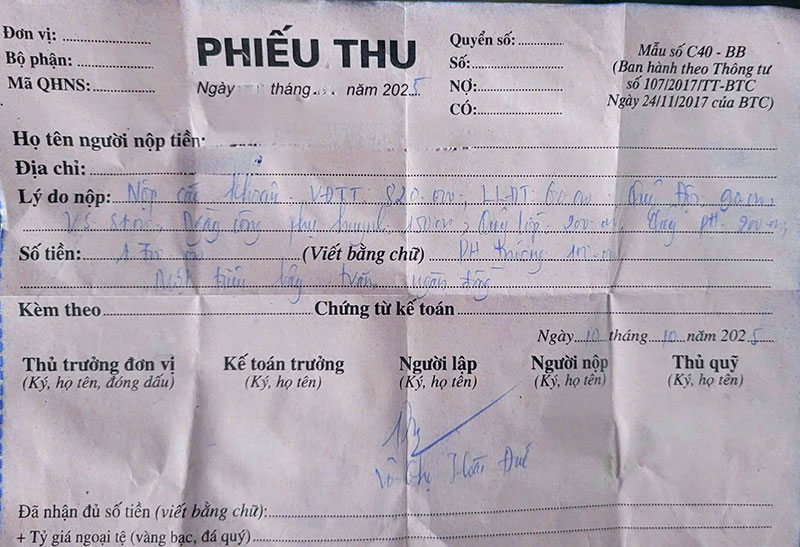 Đơn vị:
Bộ phận:
Mã QHNS:
PHIẾU THU
Ngày tháng năm 2025
Quyển số:
Số:
NỢ:
CÓ:
Mẫu số C40 - BB
(Ban hành theo Thông tư
số 107/2017/TT-BTC
Ngày 24/11/2017 của BTC)
Họ tên người nộp tiền:
Địa chỉ:
Lý do nộp: Nộp các khoản VĐTT 820.000; LLĐT 60.000 Quỹ Đội
VS phụ huynh 150.000; Quỹ lớp 200.000; Quỹ PH 200.000;
Số tiền: (Viết bằng chữ) PH trường 100.000
Một triệu bảy trăm ngàn đồng
Kèm theo Chứng từ kế toán
Ngày 10 tháng 10 năm 2025
Thủ trưởng đơn vị
(Ký, họ tên, đóng dấu)
Kế toán trưởng
(Ký, họ tên)
Người lập
(Ký, họ tên)
Người nộp
(Ký, họ tên)
Thủ quỹ
(Ký, họ tên)
Võ Thị Hoài
Đã nhận đủ số tiền (viết bằng chữ):
+ Tỷ giá ngoại tệ (vàng bạc, đá quý)